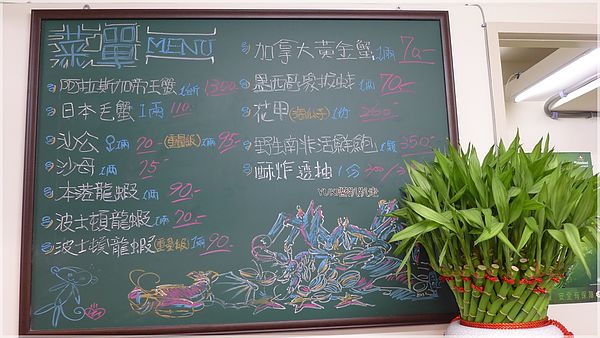 菜單 MENU
阿拉斯加帝王蟹 1斤 1300
日本毛蟹 1兩 110
沙公 1兩 70- (重量級) 1兩 95-
沙母 1兩 75-
本港龍蝦 1兩 90-
波士頓龍蝦 1兩 70-
波士頓龍蝦 (重量級) 1兩 90-
加拿大黃金蟹 1兩 70-
墨西哥 1兩 70-
花甲 1份 260-
野生南非活鮮鮑 1顆 350-
酥炸透抽 1分
YUKI
安全有保障